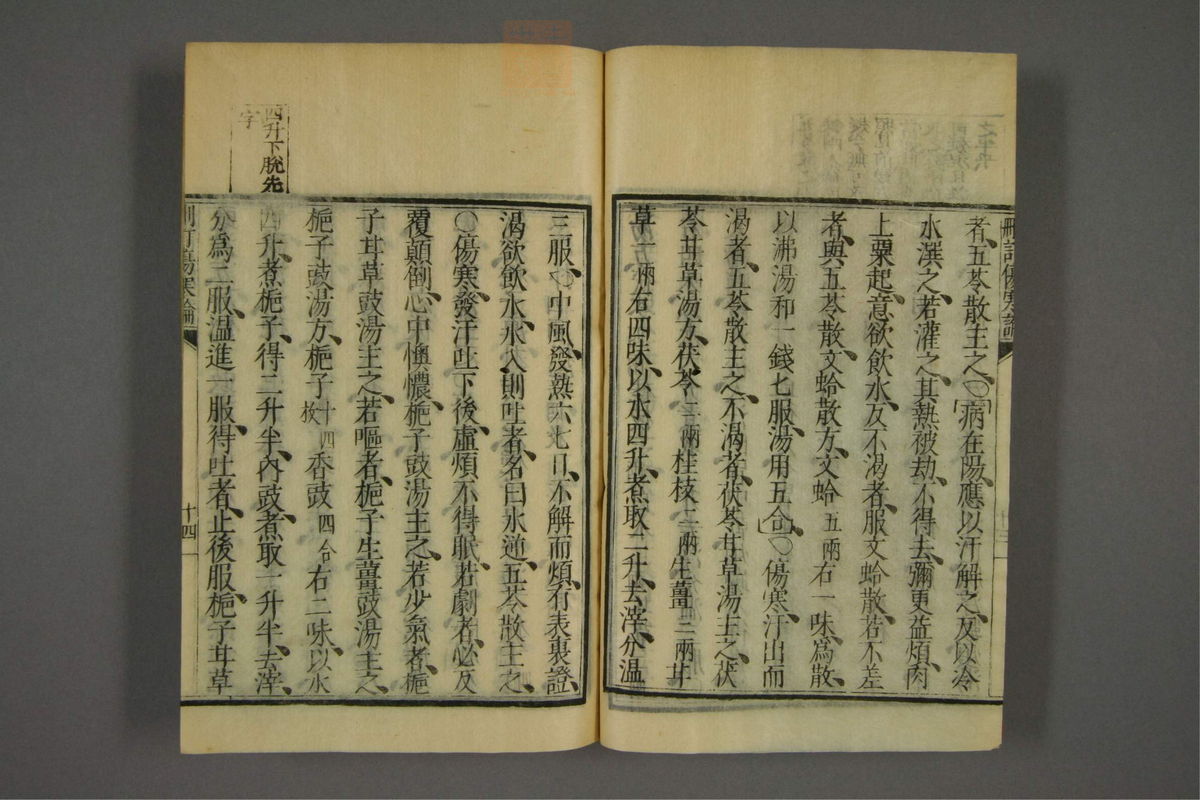 者五苓散主之○病在陽應以汗解之反以冷
水潠之若灌之其熱被劫不得去彌更益煩肉
上粟起意欲飲水反不渴者服文蛤散若不差
者與五苓散文蛤散方文蛤五兩右一味為散
以沸湯和一錢匕服湯用五合○傷寒汗出而
渴者五苓散主之不渴者茯苓甘草湯主之茯
苓甘草湯方茯苓二兩桂枝二兩生薑三兩甘
草一兩右四味以水四升煮取二升去滓分温
三服○中風發熱六七日不解而煩有表裏證
渴欲飲水水入則吐者名曰水逆五苓散主之
○傷寒發汗吐下後虛煩不得眠若劇者必反
覆顛倒心中懊憹梔子豉湯主之若少氣者梔
子甘草豉湯主之若嘔者梔子生薑豉湯主之
梔子豉湯方梔子十四枚香豉四合右二味以水
四升煮梔子得二升半內豉煮取一升半去滓
分為二服温進一服得吐者止後服梔子甘草
四升下脫先
字
刪訂傷寒論
十四